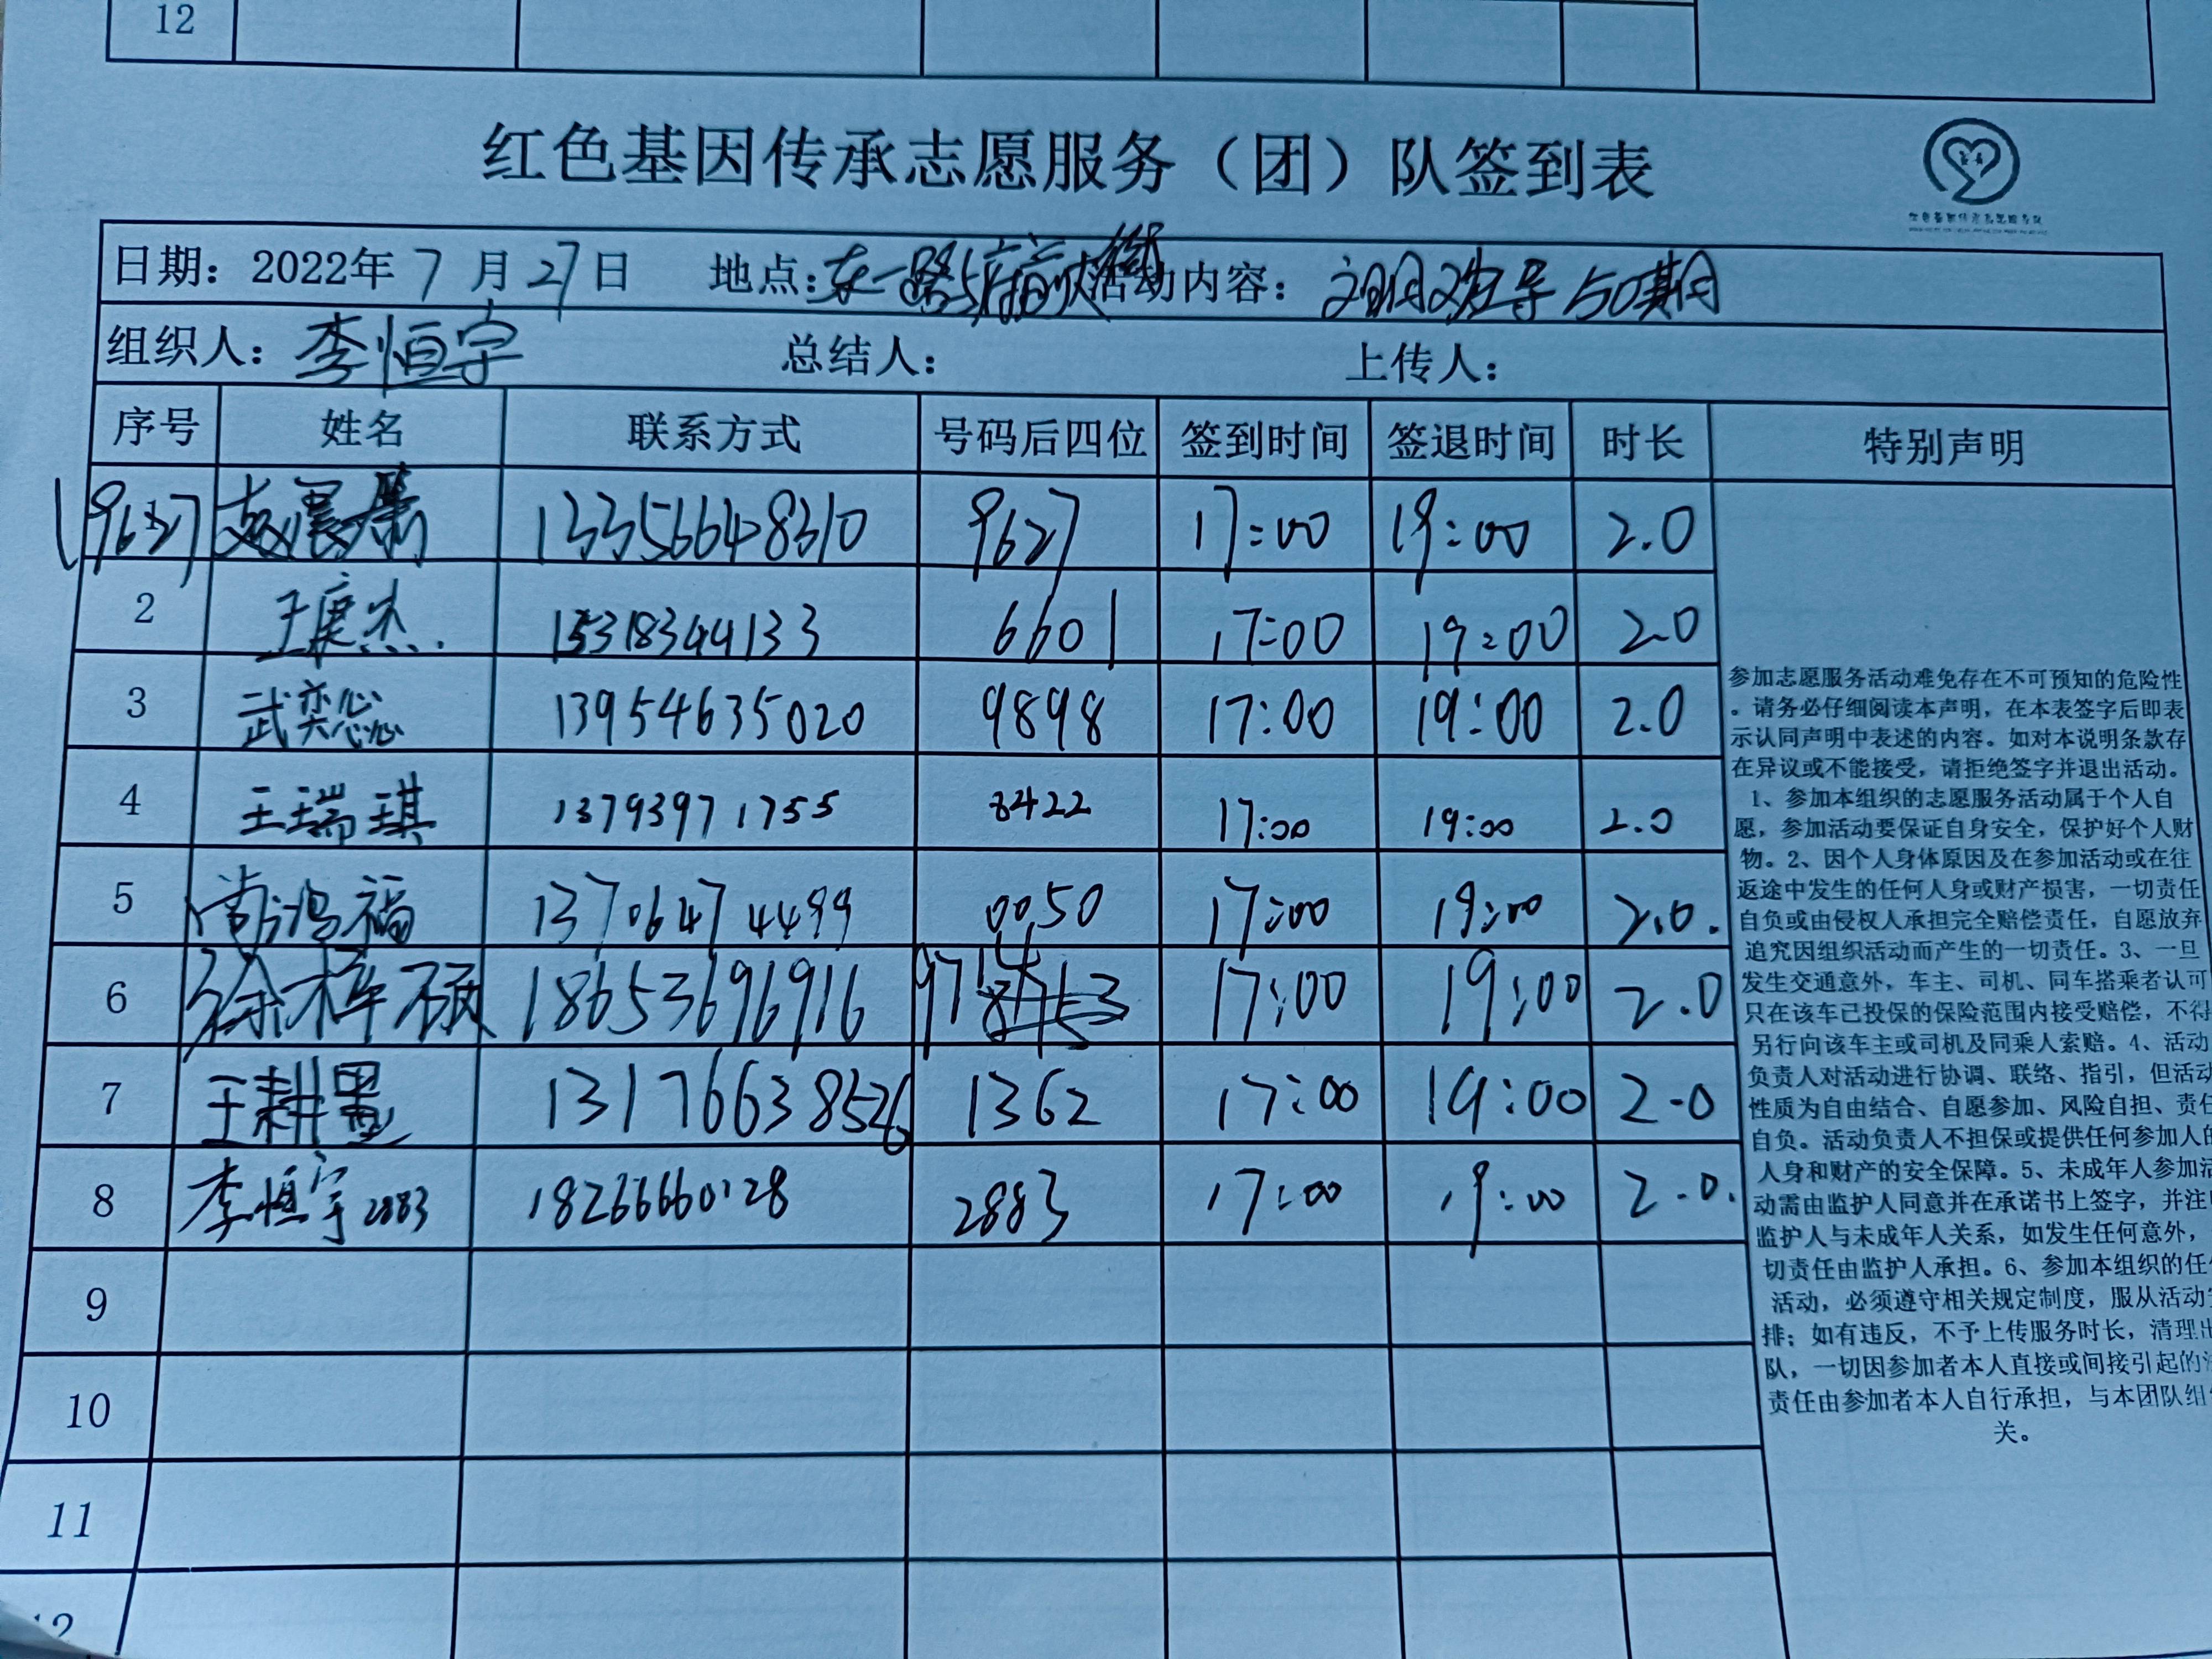 12
红色基因传承志愿服务（团）队签到表
日期：2022年 7 月 27 日 地点：东一路与府前大街 活动内容：文明劝导50期
组织人：李恒宇 总结人： 上传人：
序号 姓名 联系方式 号码后四位 签到时间 签退时间 时长 特别声明
9627 赵晨 13356648310 9627 17:00 19:00 2.0
2 王康杰 15318344133 6601 17:00 19:00 2.0
3 武奕 13954635020 9898 17:00 19:00 2.0
4 王瑞琪 13793971755 8422 17:00 19:00 2.0
5 尚鸿福 13706474499 0050 17:00 19:00 2.0.
6 徐梓硕 18653696916 17:00 19:00 2.0
7 王耕墨 13176638526 1362 17:00 19:00 2.0
8 李恒宇2883 18266660128 2883 17:00 19:00 2.0.
9
10
11
12
参加志愿服务活动难免存在不可预知的危险性
。请务必仔细阅读本声明，在本表签字后即表
示认同声明中表述的内容。如对本说明条款存
在异议或不能接受，请拒绝签字并退出活动。
1、参加本组织的志愿服务活动属于个人自
愿，参加活动要保证自身安全，保护好个人财
物。2、因个人身体原因及在参加活动或在往
返途中发生的任何人身或财产损害，一切责任
自负或由侵权人承担完全赔偿责任，自愿放弃
追究因组织活动而产生的一切责任。3、一旦
发生交通意外，车主、司机、同车搭乘者认可
只在该车已投保的保险范围内接受赔偿，不得
另行向该车主或司机及同乘人索赔。4、活动
负责人对活动进行协调、联络、指引，但活动
性质为自由结合、自愿参加、风险自担、责任
自负。活动负责人不担保或提供任何参加人的
人身和财产的安全保障。5、未成年人参加活
动需由监护人同意并在承诺书上签字，并注
监护人与未成年人关系，如发生任何意外，
切责任由监护人承担。6、参加本组织的任
活动，必须遵守相关规定制度，服从活动
排；如有违反，不予上传服务时长，清理出
队，一切因参加者本人直接或间接引起的
责任由参加者本人自行承担，与本团队组
关。